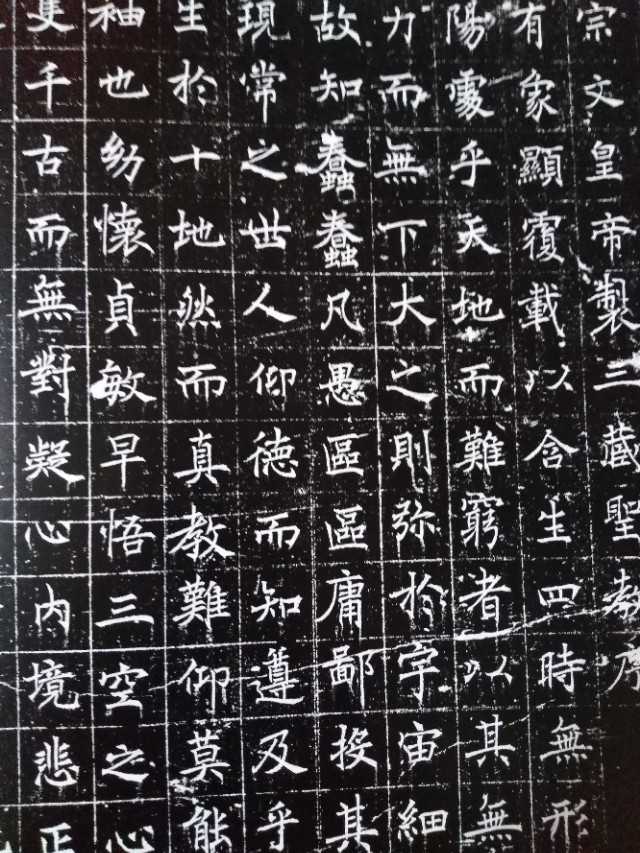 宗文皇帝製三藏聖教序
有象顯覆載以含生四時無形
陽處乎天地而難窮者以其無
力而無下大之則弥於宇宙細
故知蠢蠢凡愚區區庸鄙投其
現常之世人仰德而知遵及乎
生於十地然而真教難仰莫能
袖也幼懷貞敏早悟三空之心
隻千古而無對凝心内境悲正